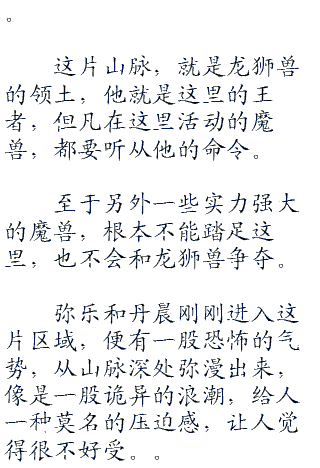 。
这片山脉，就是龙狮兽
的领土，他就是这里的王
者，但凡在这里活动的魔
兽，都要听从他的命令。
至于另外一些实力强大
的魔兽，根本不能踏足这
里，也不会和龙狮兽争夺。
弥乐和丹晨刚刚进入这
片区域，便有一股恐怖的气
势，从山脉深处弥漫出来，
像是一股诡异的浪潮，给人
一种莫名的压迫感，让人觉
得很不好受。。